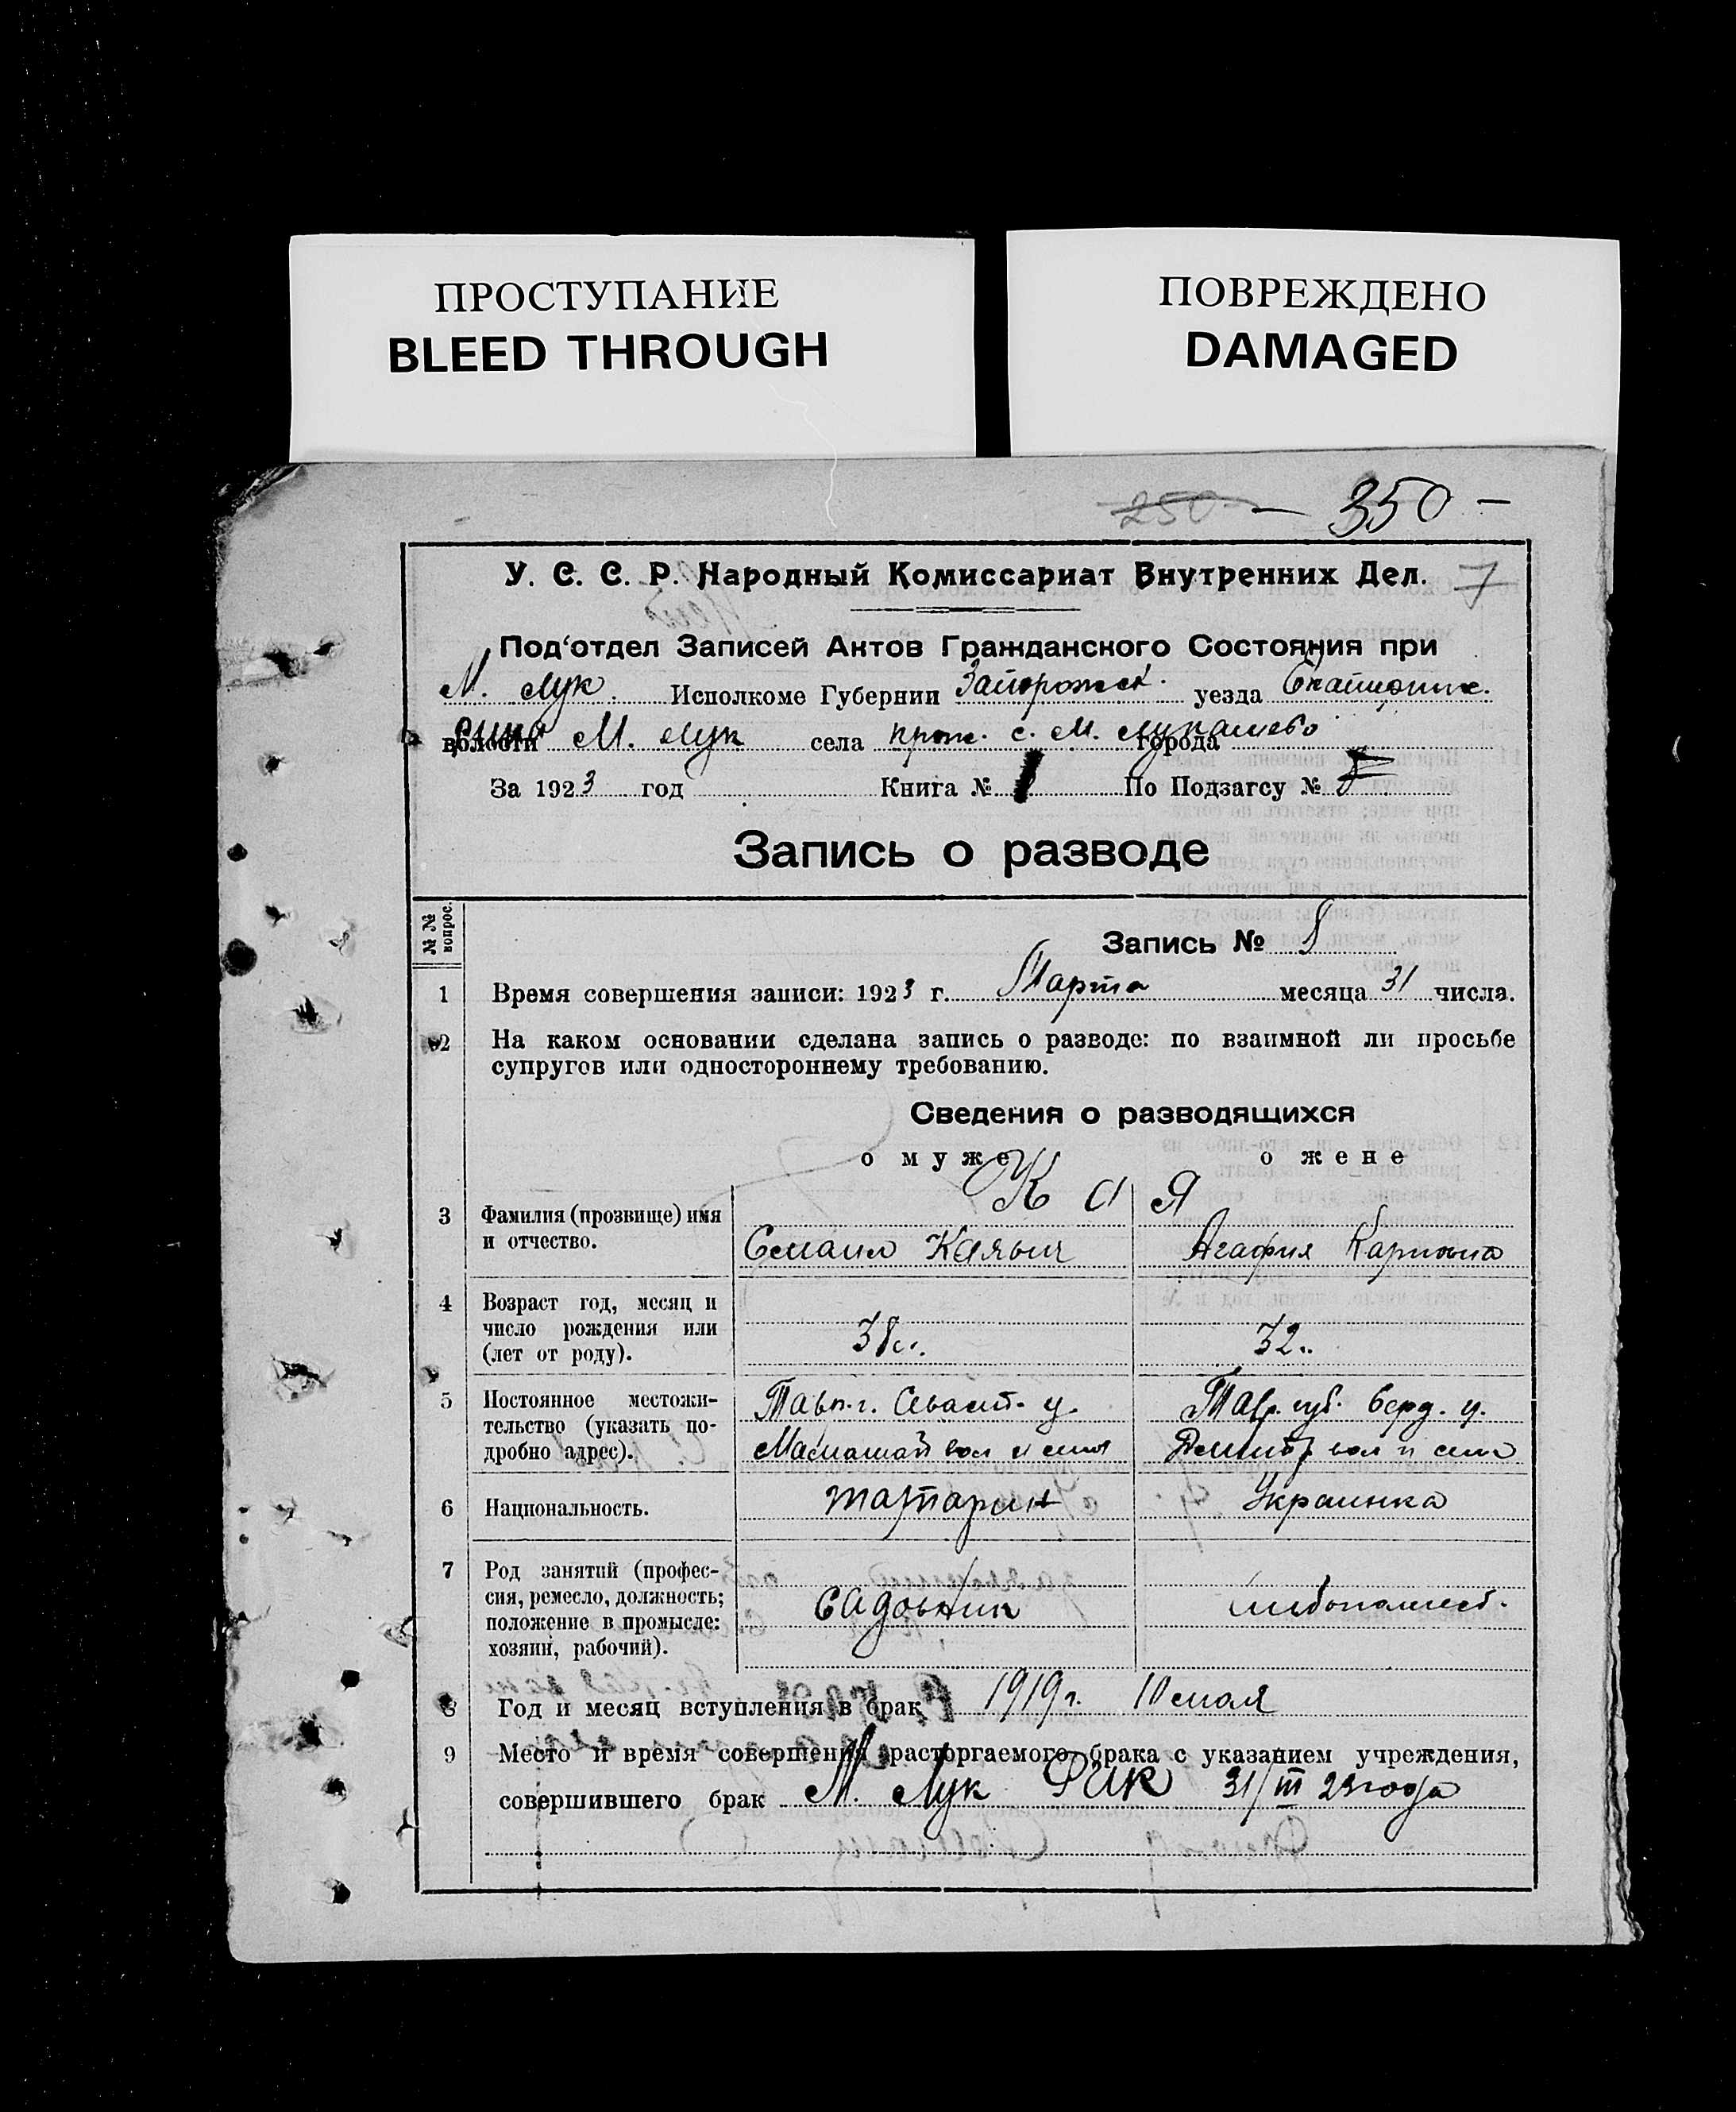 ПРОСТУПАНИЕ
BLEED THROUGH
ПОВРЕЖДЕНО
DAMAGED
250 — 350 —
У. С. С. Р. Народный Комиссариат Внутренних Дел. 7
Под'отдел Записей Актов Гражданского Состояния при
М. Лук. Исполкоме Губернии Запорожск. уезда
волости М. Лук села прож. с. М. Лукашево города
За 1923 год Книга № По Подзагсу №
Запись о разводе
№№ вопрос.
Запись № 8
1 Время совершения записи: 1923 г. Марта месяца 31 числа.
2 На каком основании сделана запись о разводе: по взаимной ли просьбе
супругов или одностороннему требованию.
Сведения о разводящихся
о муже о жене
К а Я
3 Фамилия (прозвище) имя
и отчество.
Смаил Каявич Агафия Карповна
4 Возраст год, месяц и
число рождения или
(лет от роду).
38 л. 32
5 Постоянное местожи-
тельство (указать по-
дробно адрес).
Тавр. г. Севаст. у. Тавр. губ. Берд. у.
Мамашай вол и села вол и села
6 Национальность. татарин Украинка
7 Род занятий (профес-
сия, ремесло, должность;
положение в промысле:
хозяин, рабочий).
садовник хлебопашеств.
8 Год и месяц вступления в брак 1919 г. 10 мая
9 Место и время совершения расторгаемого брака с указанием учреждения,
совершившего брак М. Лук РИК 31/III 23 года